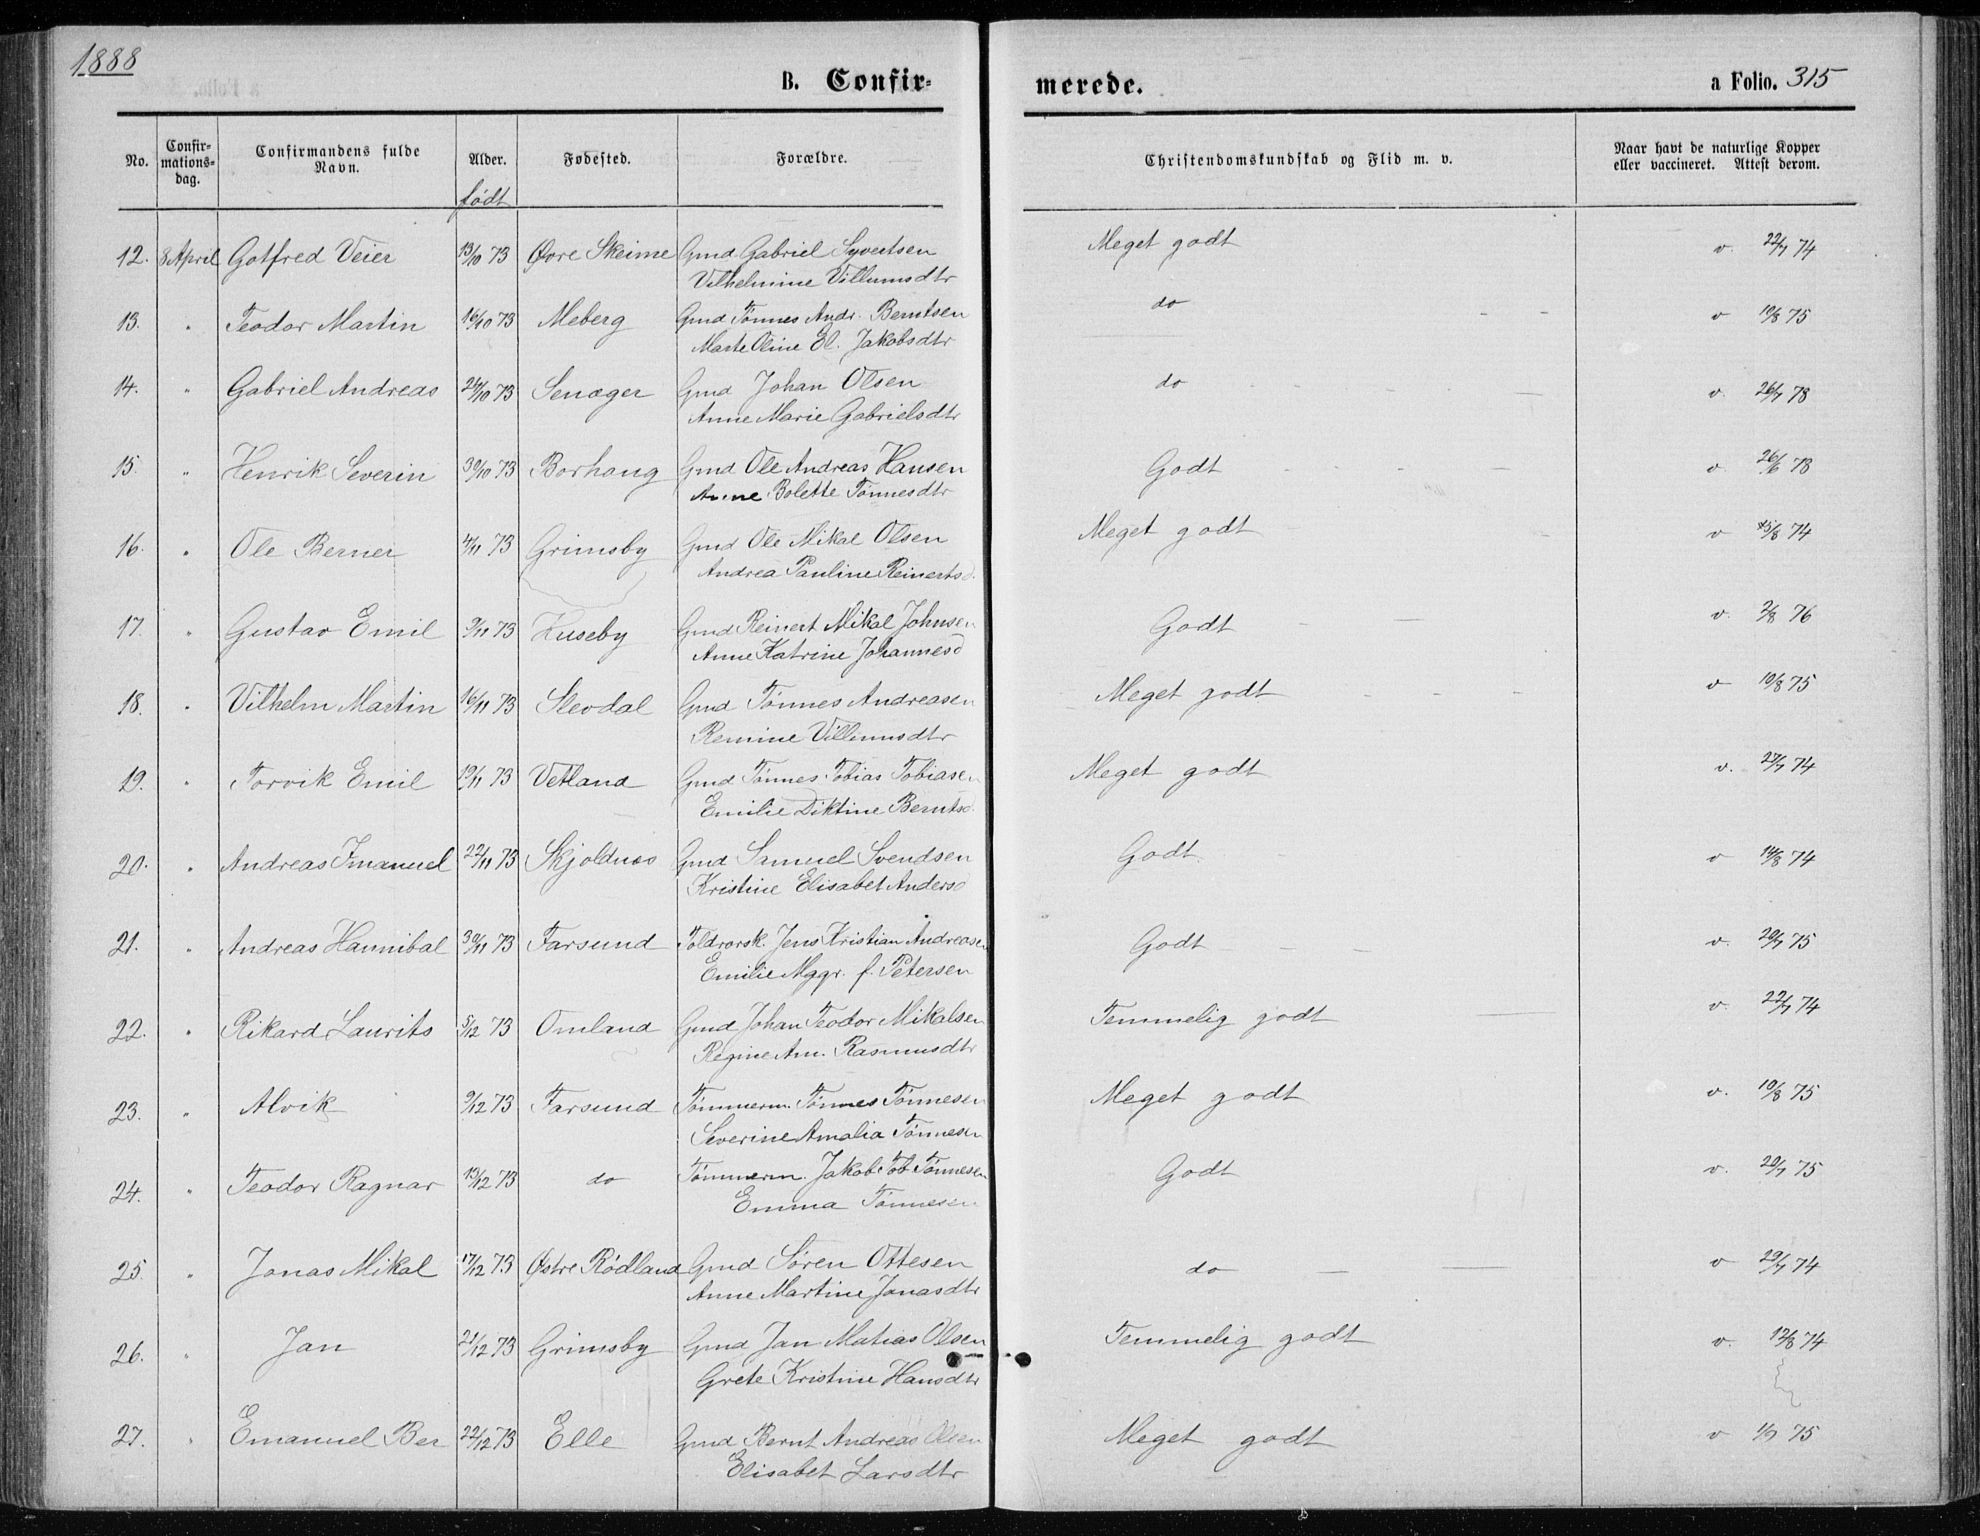 1888
B. Confir-
merede.
a Folio. 315
No.
Confir-
mations-
dag.
Confirmandens fulde
Navn.
Alder.
født
Fødested.
Forældre.
Christendomskundskab og Flid m. v.
Naar havt de naturlige Kopper
eller vaccineret. Attest derom.
12. 8 April Gotfred Veier 13/10 73 Øvre Skeime Gmd Gabriel Syvertsen Meget godt v. 22/7 74
Vilhelmine Villumsdtr
13. " Teodor Martin 16/10 73 Meberg Gmd Tønnes Andr. Berntsen do v 10/8 75
Marte Oline El. Jakobsdtr
14. " Gabriel Andreas 24/10 73 Senæger Gmd Johan Olsen do v. 26/7 78
Anne Marie Gabrielsdtr
15. " Henrik Severin 30/10 73 Borhaug Gmd Ole Andreas Hansen Godt v. 26/6 78
Anne Bolette Tønnesdtr
16. " Ole Berner 4/11 73 Grimsby Gmd Ole Mikal Olsen Meget godt v 15/8 74
Andrea Pauline Reinertsd.
17. " Gustav Emil 9/11 73 Huseby Gmd Reinert Mikal Johnsen Godt v. 2/8 76
Anne Katrine Johannesd
18. " Vilhelm Martin 16/11 73 Slevdal Gmd Tønnes Andreasen Meget godt v 10/8 75
Remine Villumsdtr
19. " Torvik Emil 19/11 73 Vetland Gmd Tønnes Tobias Tobiasen Meget godt v. 27/7 74
Emilie Diktine Berntsd.
20. " Andreas Imanuel 22/11 73 Skjoldnæs Gmd Samuel Svendsen Godt v 14/8 74
Kristine Elisabet Andersd
21. " Andreas Hannibal 30/11 73 Farsund Toldrorsk. Jens Kristian Andreasen Godt v. 20/7 75
Emilie Mggr. f. Petersen
22. " Rikard Laurits 5/12 73 Omland Gmd Johan Teodor Mikalsen Temmelig godt v. 22/7 74
Regine Am. Rasmusdtr
23. " Alvik 9/12 73 Farsund Tømmerm. Tønnes Tønnesen Meget godt v. 10/8 75
Severine Amalia Tønnesen
24. " Teodor Ragnar 13/12 73 do Tømmerm. Jakob Tob Tønnesen Godt v. 20/7 75
Emma Tønnesen
25. " Jonas Mikal 17/12 73 Østre Rødland Gmd Søren Ottesen do v 29/7 74
Anne Martine Jonasdtr
26. " Jan 21/12 73 Grimsby Gmd Jan Matias Olsen Temmelig godt v. 12/8 74
Grete Kristine Hansdtr
27. " Emanuel Ber 22/12 73 Elle Gmd Bernt Andreas Olsen Meget godt v 1/9 75
Elisabet Larsdtr